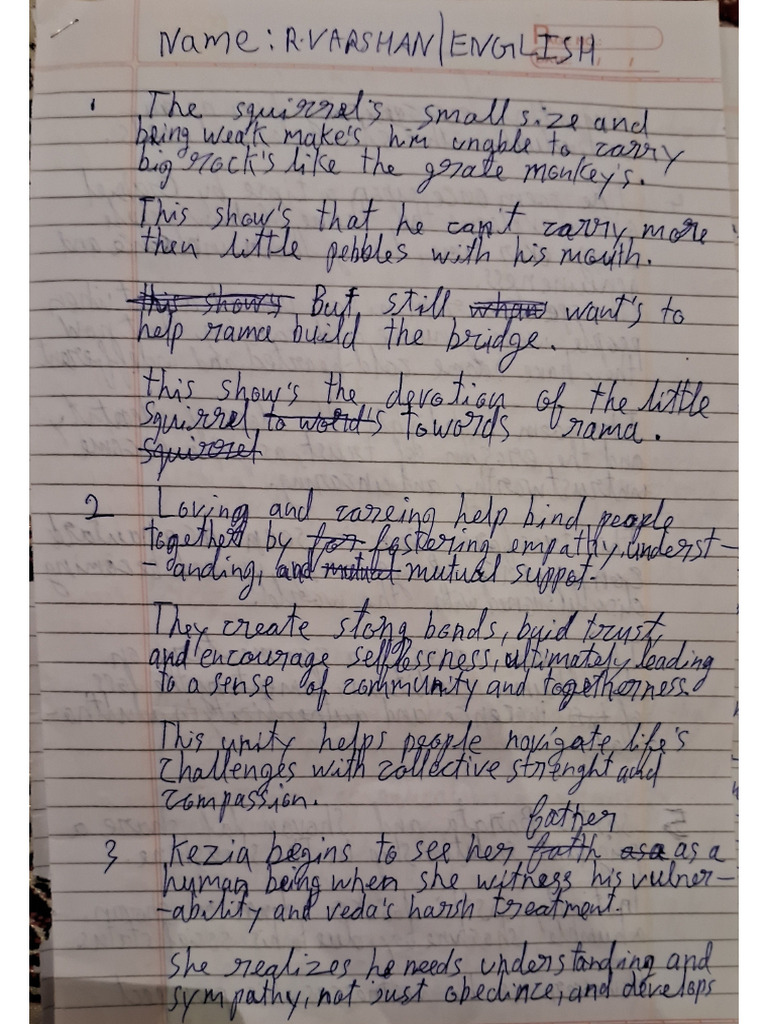 Name: R.VARSHAN/ENGLISH
1 The squirrel's small size and
being weak make's him ungable to carry
big rock's like the grate monkey's.
This show's that he can't carry more
then little pebbles with his mouth.
this show's But still whan want's to
help rama build the bridge.
this show's the devotion of the little
squirrel to world's towords rama.
squirrel
2 Loving and careing help bind people
together by for fostering empathy, underst-
-anding, and mutual mutual suppot.
They create stong bonds, buid trust,
and encourage selflessness, ultimately leading
to a sense of community and togetherness.
This unity helps people navigate life's
challenges with collective strenght and
compassion.
father
3 Kezia begins to see her fath asa as a
human being when she witness his vulner-
-ability and veda's harsh treatment.
She realizes he needs understanding and
sympathy, not just obedince, and develops